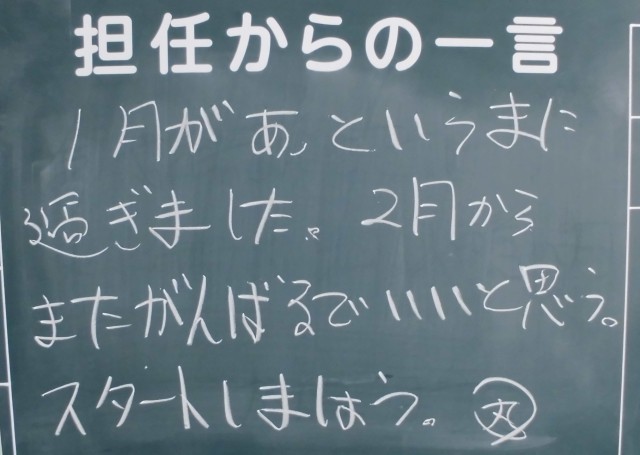 担任からの一言
1月があっというまに
過ぎました。2月から
またがんばるでいいと思う。
スタートしましょう。